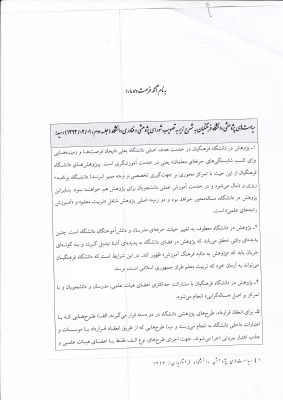 به نام آنکه فرصت داد ما را
سیاست‌های پژوهشی دانشگاه فرهنگیان به شرح زیر به تصویب شورای پژوهشی و فناوری دانشگاه (جلسه دوم، ۱۳۹۳/۰۲/۰۱) رسید:
۱. پژوهش در دانشگاه فرهنگیان در خدمت هدف اصلی دانشگاه یعنی «ایجاد فرصت‌ها و زمینه‌هایی
برای کسب شایستگی‌های حرفه‌ای معلمان» یعنی در خدمت آموزشگری است. پژوهش‌های دانشگاه
فرهنگیان از این حیث با تمرکز محوری بر جهت‌گیری تخصصی و وجه ممیز (برند) دانشگاه برنامه
ریزی و دنبال می‌شود و در خدمت آموزش عملی دانشجویان برای پژوهش هم خواهند بود. بنابراین
پژوهش در دانشگاه مساله‌محور خواهد بود و دو زمینه اصلی پژوهش شامل «تربیت معلم» و «آموزش
رشته‌های علمی» است.
۲. پژوهش در دانشگاه معطوف به تغییر حیات حرفه‌ای مدرسان و دانش‌آموختگان دانشگاه است. چنین
پدیده‌ای وقتی تحقق می‌یابد که پژوهش در فضای دانشگاه به پدیده‌ای آشنا تبدیل گردد و به گونه‌ای
جریان یابد که «پژوهش به مثابه فرهنگ آموزش» ظهور کند. در این شرایط است که دانشگاه فرهنگیان
می‌تواند به آرمان خود که تربیت معلم طراز جمهوری اسلامی است، برسد.
۴. پژوهش در دانشگاه فرهنگیان با مشارکت حداکثری اعضای هیات علمی، مدرسان و دانشجویان و با
تمرکز بر اصل «مساله‌گرایی» انجام می‌شود.
۵. برای انعقاد قرارداد، طرح‌های پژوهشی دانشگاه در دو دسته قرار می‌گیرند: الف) طرح‌هایی که با
اعتبارات داخلی دانشگاه به انجام می‌رسند و ب) طرح‌هایی که از طریق انعقاد قرارداد با موسسات و
جذب اعتبار بیرونی اجرا می‌شوند. جهت اجرای طرح‌های نوع الف فقط با اعضای هیات علمی و
۱ | سیاست‌های پژوهشی دانشگاه فرهنگیان